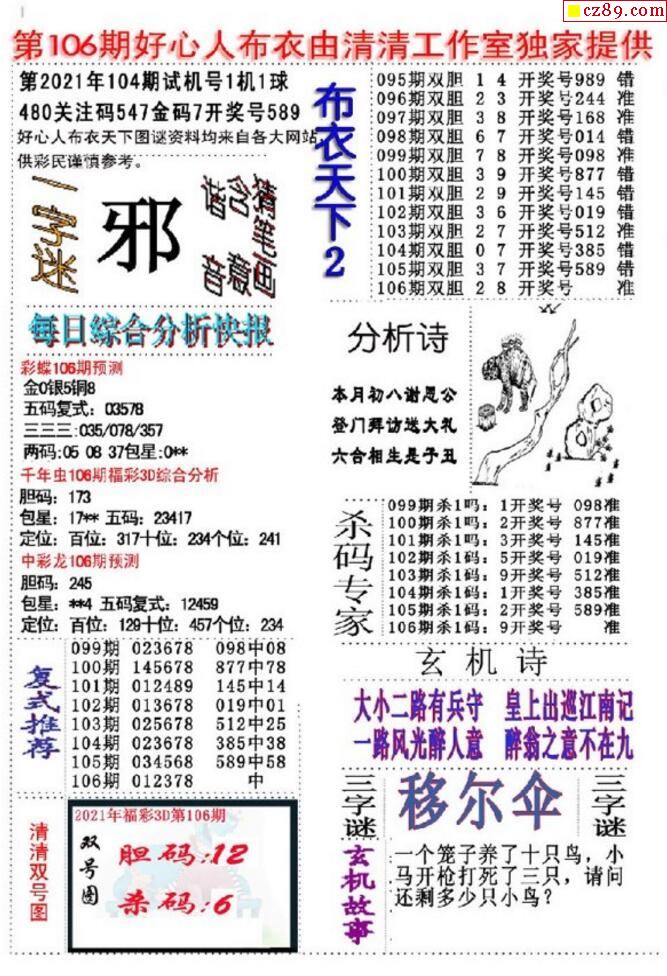 cz89.com
第106期好心人布衣由清清工作室独家提供
第2021年104期试机号1机1球
480关注码547金码7开奖号589
好心人布衣天下图谜资料均来自各大网站,
供彩民谨慎参考。
一字迷
邪
谐音
含意
猜笔画
每日综合分析快报
彩蝶106期预测
金0银5铜8
五码复式：03578
三三三:035/078/357
两码:05 08 37包星:0**
千年虫106期福彩3D综合分析
胆码：173
包星：17** 五码：23417
定位：百位：317十位：234个位：241
中彩龙106期预测
胆码：245
包星：**4 五码复式：12459
定位：百位：129十位：457个位：234
复式推荐
099期 023678 098中08
100期 145678 877中78
101期 012489 145中14
102期 013678 019中01
103期 025678 512中25
104期 023678 385中38
105期 034568 589中58
106期 012378 中
清清双号图
2021年福彩3D第106期
双号图
胆码:12
杀码:6
布衣天下2
095期双胆 1 4 开奖号989 错
096期双胆 2 3 开奖号244 准
097期双胆 3 8 开奖号168 准
098期双胆 6 7 开奖号014 错
099期双胆 7 8 开奖号098 准
100期双胆 3 9 开奖号877 错
101期双胆 2 9 开奖号145 错
102期双胆 3 6 开奖号019 错
103期双胆 2 7 开奖号512 准
104期双胆 0 7 开奖号385 错
105期双胆 3 7 开奖号589 错
106期双胆 2 8 开奖号 准
分析诗
本月初八谢恩公
登门拜访送大礼
六合相生是子丑
杀码专家
099期杀1吗：1开奖号 098准
100期杀1吗：2开奖号 877准
101期杀1吗：3开奖号 145准
102期杀1码：5开奖号 019准
103期杀1码：9开奖号 512准
104期杀1码：1开奖号 385准
105期杀1码：2开奖号 589准
106期杀1码：9开奖号 准
玄机诗
大小二路有兵守 皇上出巡江南记
一路风光醉人意 醉翁之意不在九
三字谜
移尔伞
三字谜
玄机故事
一个笼子养了十只鸟，小
马开枪打死了三只，请问
还剩多少只小鸟？